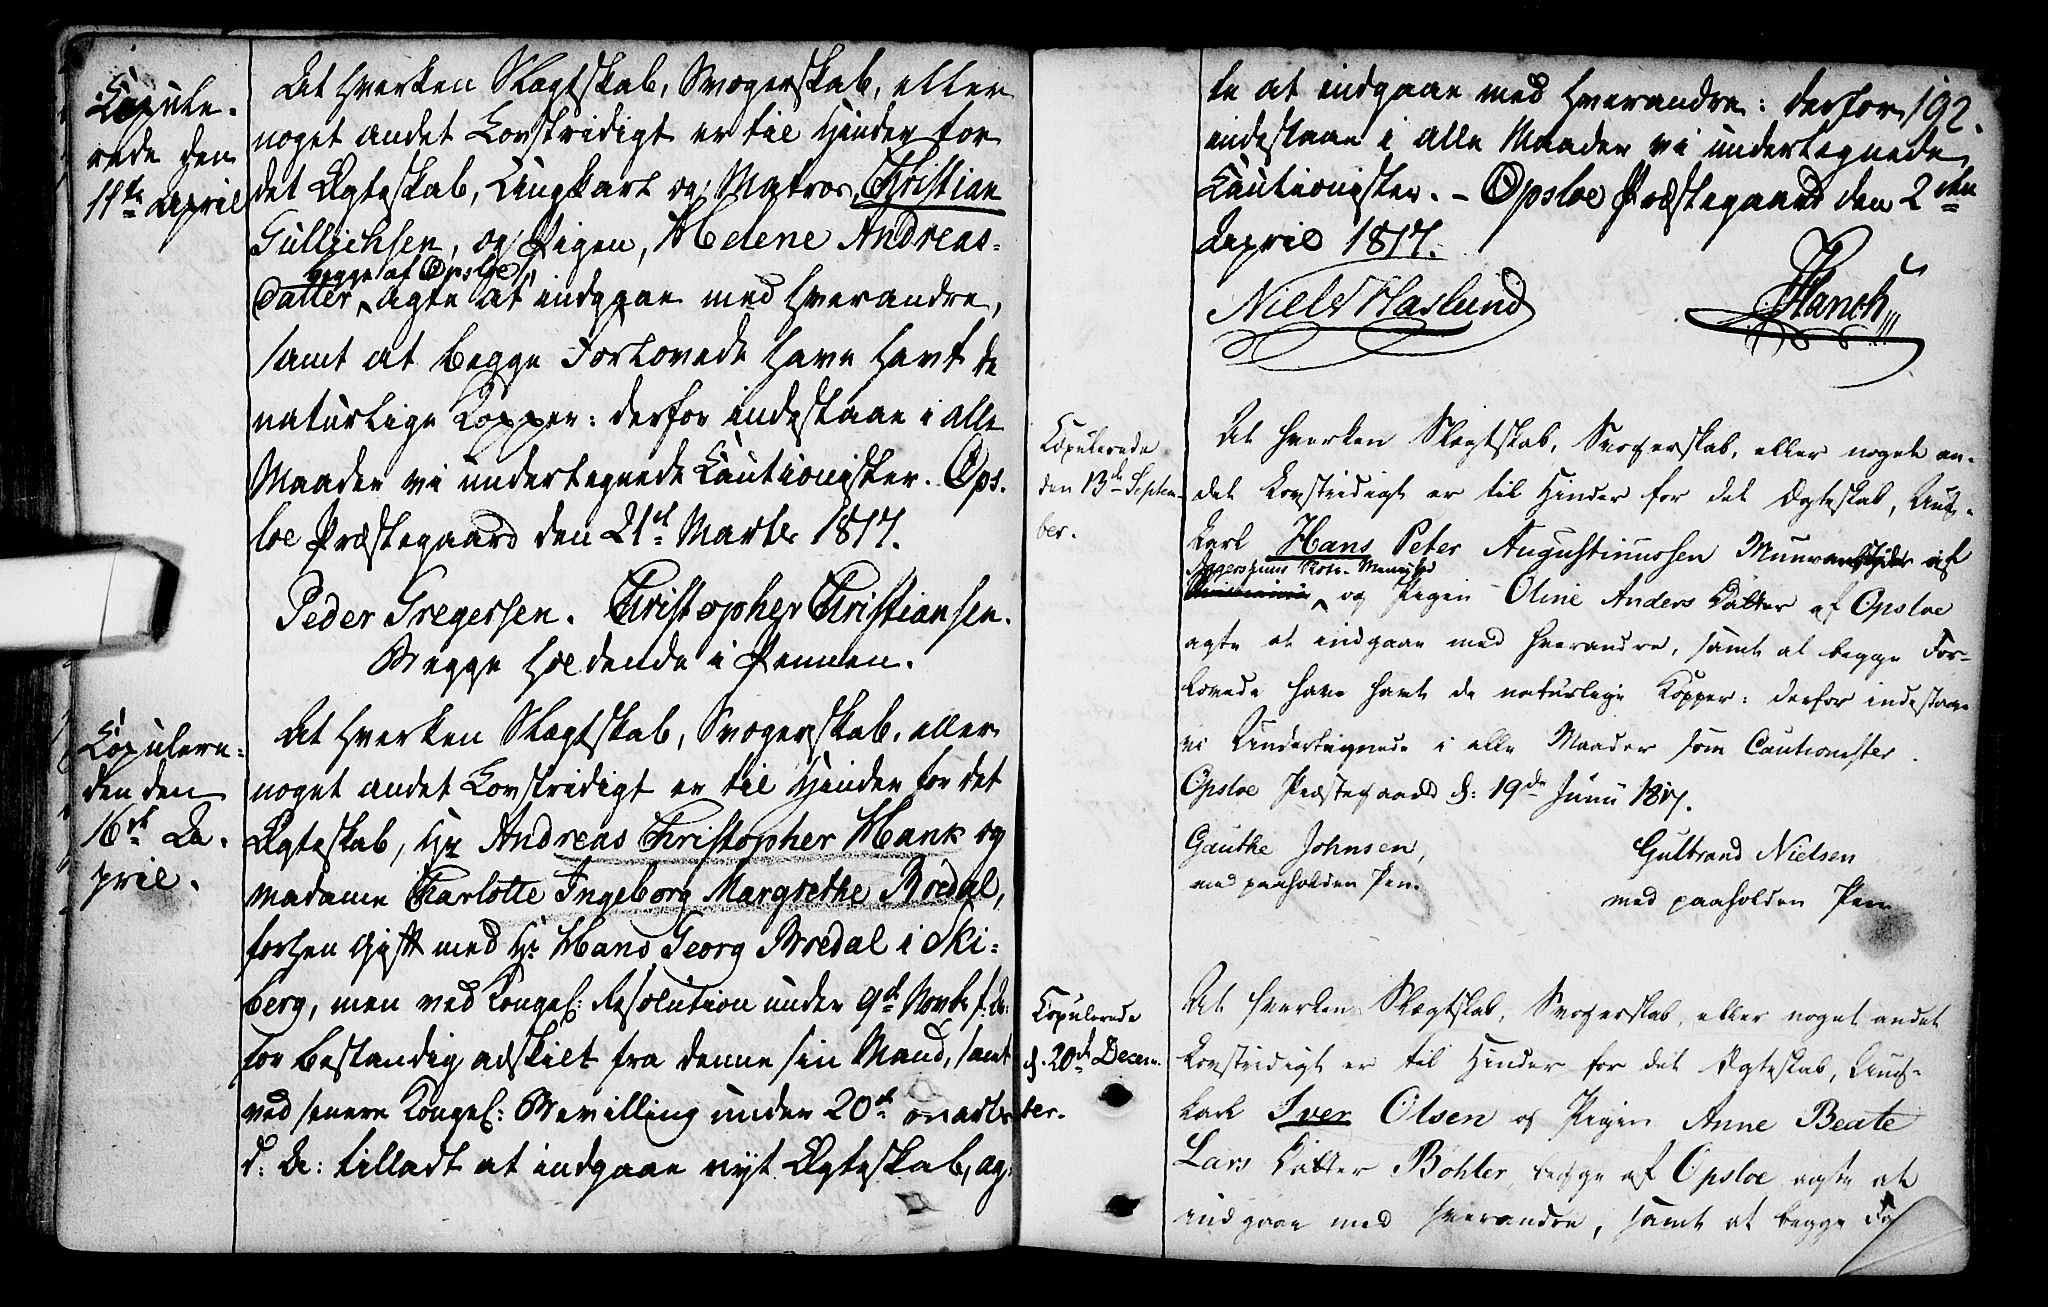 Copule-
rede den
11te April
At hverken Slægtskab, Svogerskab, eller
noget andet Lovstridigt er til Hinder for
det Ægteskab, Ungkarl og Matros, Christian
Gullichsen, og Pigen, Helene Andreas-
begge af Opsloe,
Datter agte at indgaae med hverandre,
samt at begge Forlovede have havt de
naturlige Kopper: derfor indestaae i alle
Maader vi undertegnede Cautionister. Ops-
loe Præstegaard den 21de Marts 1817.
Peder Gregersen. Christopher Christiansen.
Begge holdende i Pennen.
Copulere-
den den
16de A-
pril.
At hverken Slægtskab, Svogerskab, eller
noget andet Lovstridigt er til Hinder for det
Ægteskab, Hr Andreas Christopher Hank og
Madame Charlotte Ingeborg Margrethe Bredal,
forhen gift med Hr. Hans Georg Bredal i Ski-
berg, men ved Kongel: Resolution under 9de Novbr f: A:
for bestandig adskilt fra denne sin Mand, samt
ved senere Kongel: Bevilling under 20de Marts
d: A: tilladt at indgaae nyt Ægteskab, ag-
192.
te at indgaae med hverandre: derfor
indestaae i alle Maader vi undertegnede
Cautionister. - Opsloe Præstegaard den 2den
April 1817.
Niels Haslund Hanch
Copulerede
den 13de Septem-
ber.
At hverken Slægtskab, Svogerskab, eller noget an-
det Lovstridigt er til Hinder for det Ægteskab, Ung-
karl Hans Peter Augustinussen af
og Pigen Oline Anders Datter af Opsloe
agte at indgaae med hverandre, samt at begge For-
lovede have havt de naturlige Kopper: derfor indestaae
vi Undertegnede i alle Maader som Cautionister.
Opsloe Præstegaard d: 19de Junii 1817.
Gauthe Johnsen, Gulbrand Nielsen
med paaholden Pen. med paaholden Pen
Copulerede
d. 20de Decem-
ber.
At hverken Slægtskab, Svogerskab, eller noget andet
Lovstridigt er til Hinder for det Ægteskab, Ung-
karl Iver Olsen og Pigen Anne Beate
Lars Datter Bøhler, begge af Opsloe agte at
indgaae med hverandre, samt at begge Fo